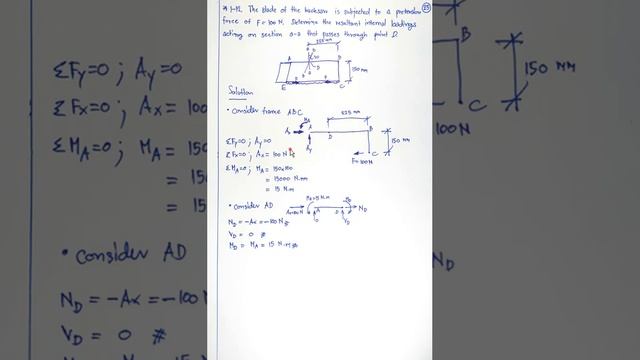 * 1-12. The blade of the hacksaw is subjected to a pretension
force of F=100N. Determine the resultant internal loadings
acting on section a-a that passes through point D.
225 mm
A
B
D
30
150 mm
E
C
Solution
• Consider frame ABC
225 mm
MA
Ax
A
D
B
Ay
150 mm
F=100N
C
ΣFy=0; Ay=0
ΣFx=0; Ax=100 N
ΣMA=0; MA = 150×100
= 15000 N.mm
= 15 N.m
• Consider AD
MA=15 N.m
Ax=100 N
A
D
ND
0
ND = -Ax = -100 N #
VD = 0 #
MD = MA = 15 N.m #
ΣFy=0; Ay=0
ΣFx=0; Ax = 100
ΣMA=0; MA = 150
= 150
= 15
• Consider AD
ND = -Ax = -100 N
VD = 0 #
B
150 mm
C
100N